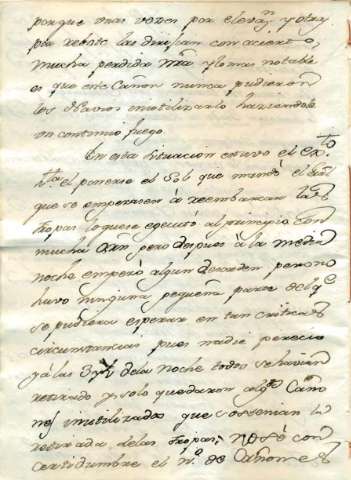 porque unas voten por elevaⁿ y otras
por rebote las dirijian con acierto,
mucha perdida nrã y lo mas notable
es que este Cañon nunca pudieron
los nuestros inutilizarlo haziendole
un continuo fuego.
En esta situacion estuvo el exto
hta el ponerse el Sol que mandó el Gral
que se empezasen á reembarcar las
tropas loque se egecutó al principio con
mucha orn pero despues á la media
noche empezó algun desorden pero no
huvo ninguna pequeña parte de lo qe
se pudiera esperar en tan criticas
circunstancias pues nadie perecio
y á las 3 ½ dela noche todos se havian
retirado y solo quedaron algs Caño
nes inutilizados que sostenian la
retirada delas tropas, no sé con
certidumbre el no de Cañones